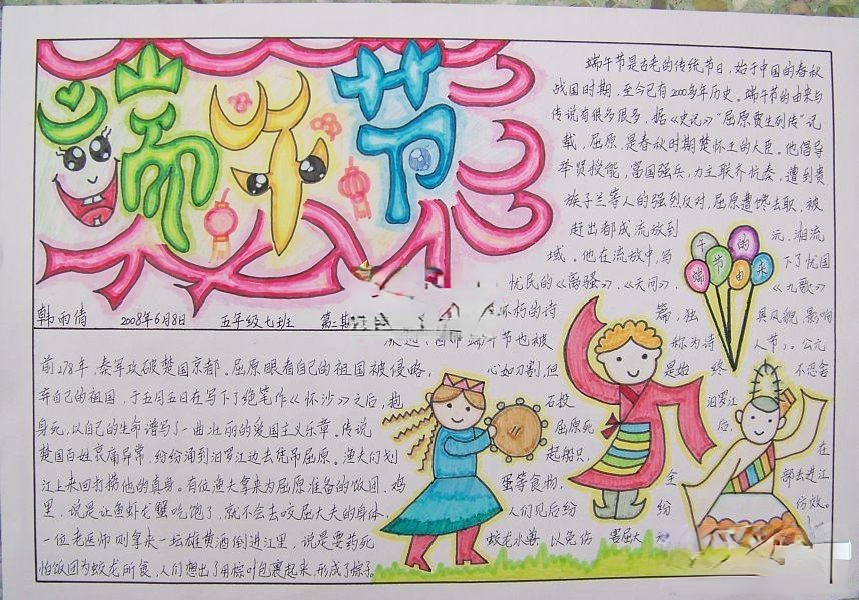 端午节
端午节是古老的传统节日,始于中国的春秋
战国时期,至今已有2000多年历史。端午节的由来与
传说有很多很多,据《史记》"屈原贾生列传"记
载,屈原,是春秋时期楚怀王的大臣。他倡导
举贤授能,富国强兵,力主联齐抗秦,遭到贵
族子兰等人的强烈反对,屈原遭馋去取,被
赶出都成流放到 元、湘流
域。他在流放中,写 下了忧国
忧民的《离骚》、《天问》、 《九歌》
端午节的由来
韩雨倩 2008年6月8日 五年级七班 第二期
不朽的诗 篇,独 具风貌,影响
端午节也被 称为诗 人节)。公元
前278年,秦军攻破楚国京都。屈原眼看自己的祖国被侵略, 心如刀割,但 是始 终 不忍舍
弃自己的祖国,于五月五日在写下了绝笔作《怀沙》之后,抱 石投 汨罗江
身死,以自己的生命谱写了一曲壮丽的爱国主义乐章。传说 屈原死 后,
楚国百姓哀痛异常,纷纷涌到汨罗江边去凭吊屈原。渔夫们划 起船只, 在
江上来回打捞他的真身。有位渔夫拿来为屈原准备的饭团、鸡 蛋等食物, 全 部丢进江
里,说是让鱼虾龙蟹吃饱了,就不会去咬屈大夫的身体, 人们见后纷 纷 仿效。
一位老医师则拿来一坛雄黄酒倒进江里,说是要药死 蛟龙水兽,以免伤 害屈大
怕饭团为蛟龙所食,人们想出了用棕叶包裹起来,形成了棕子。